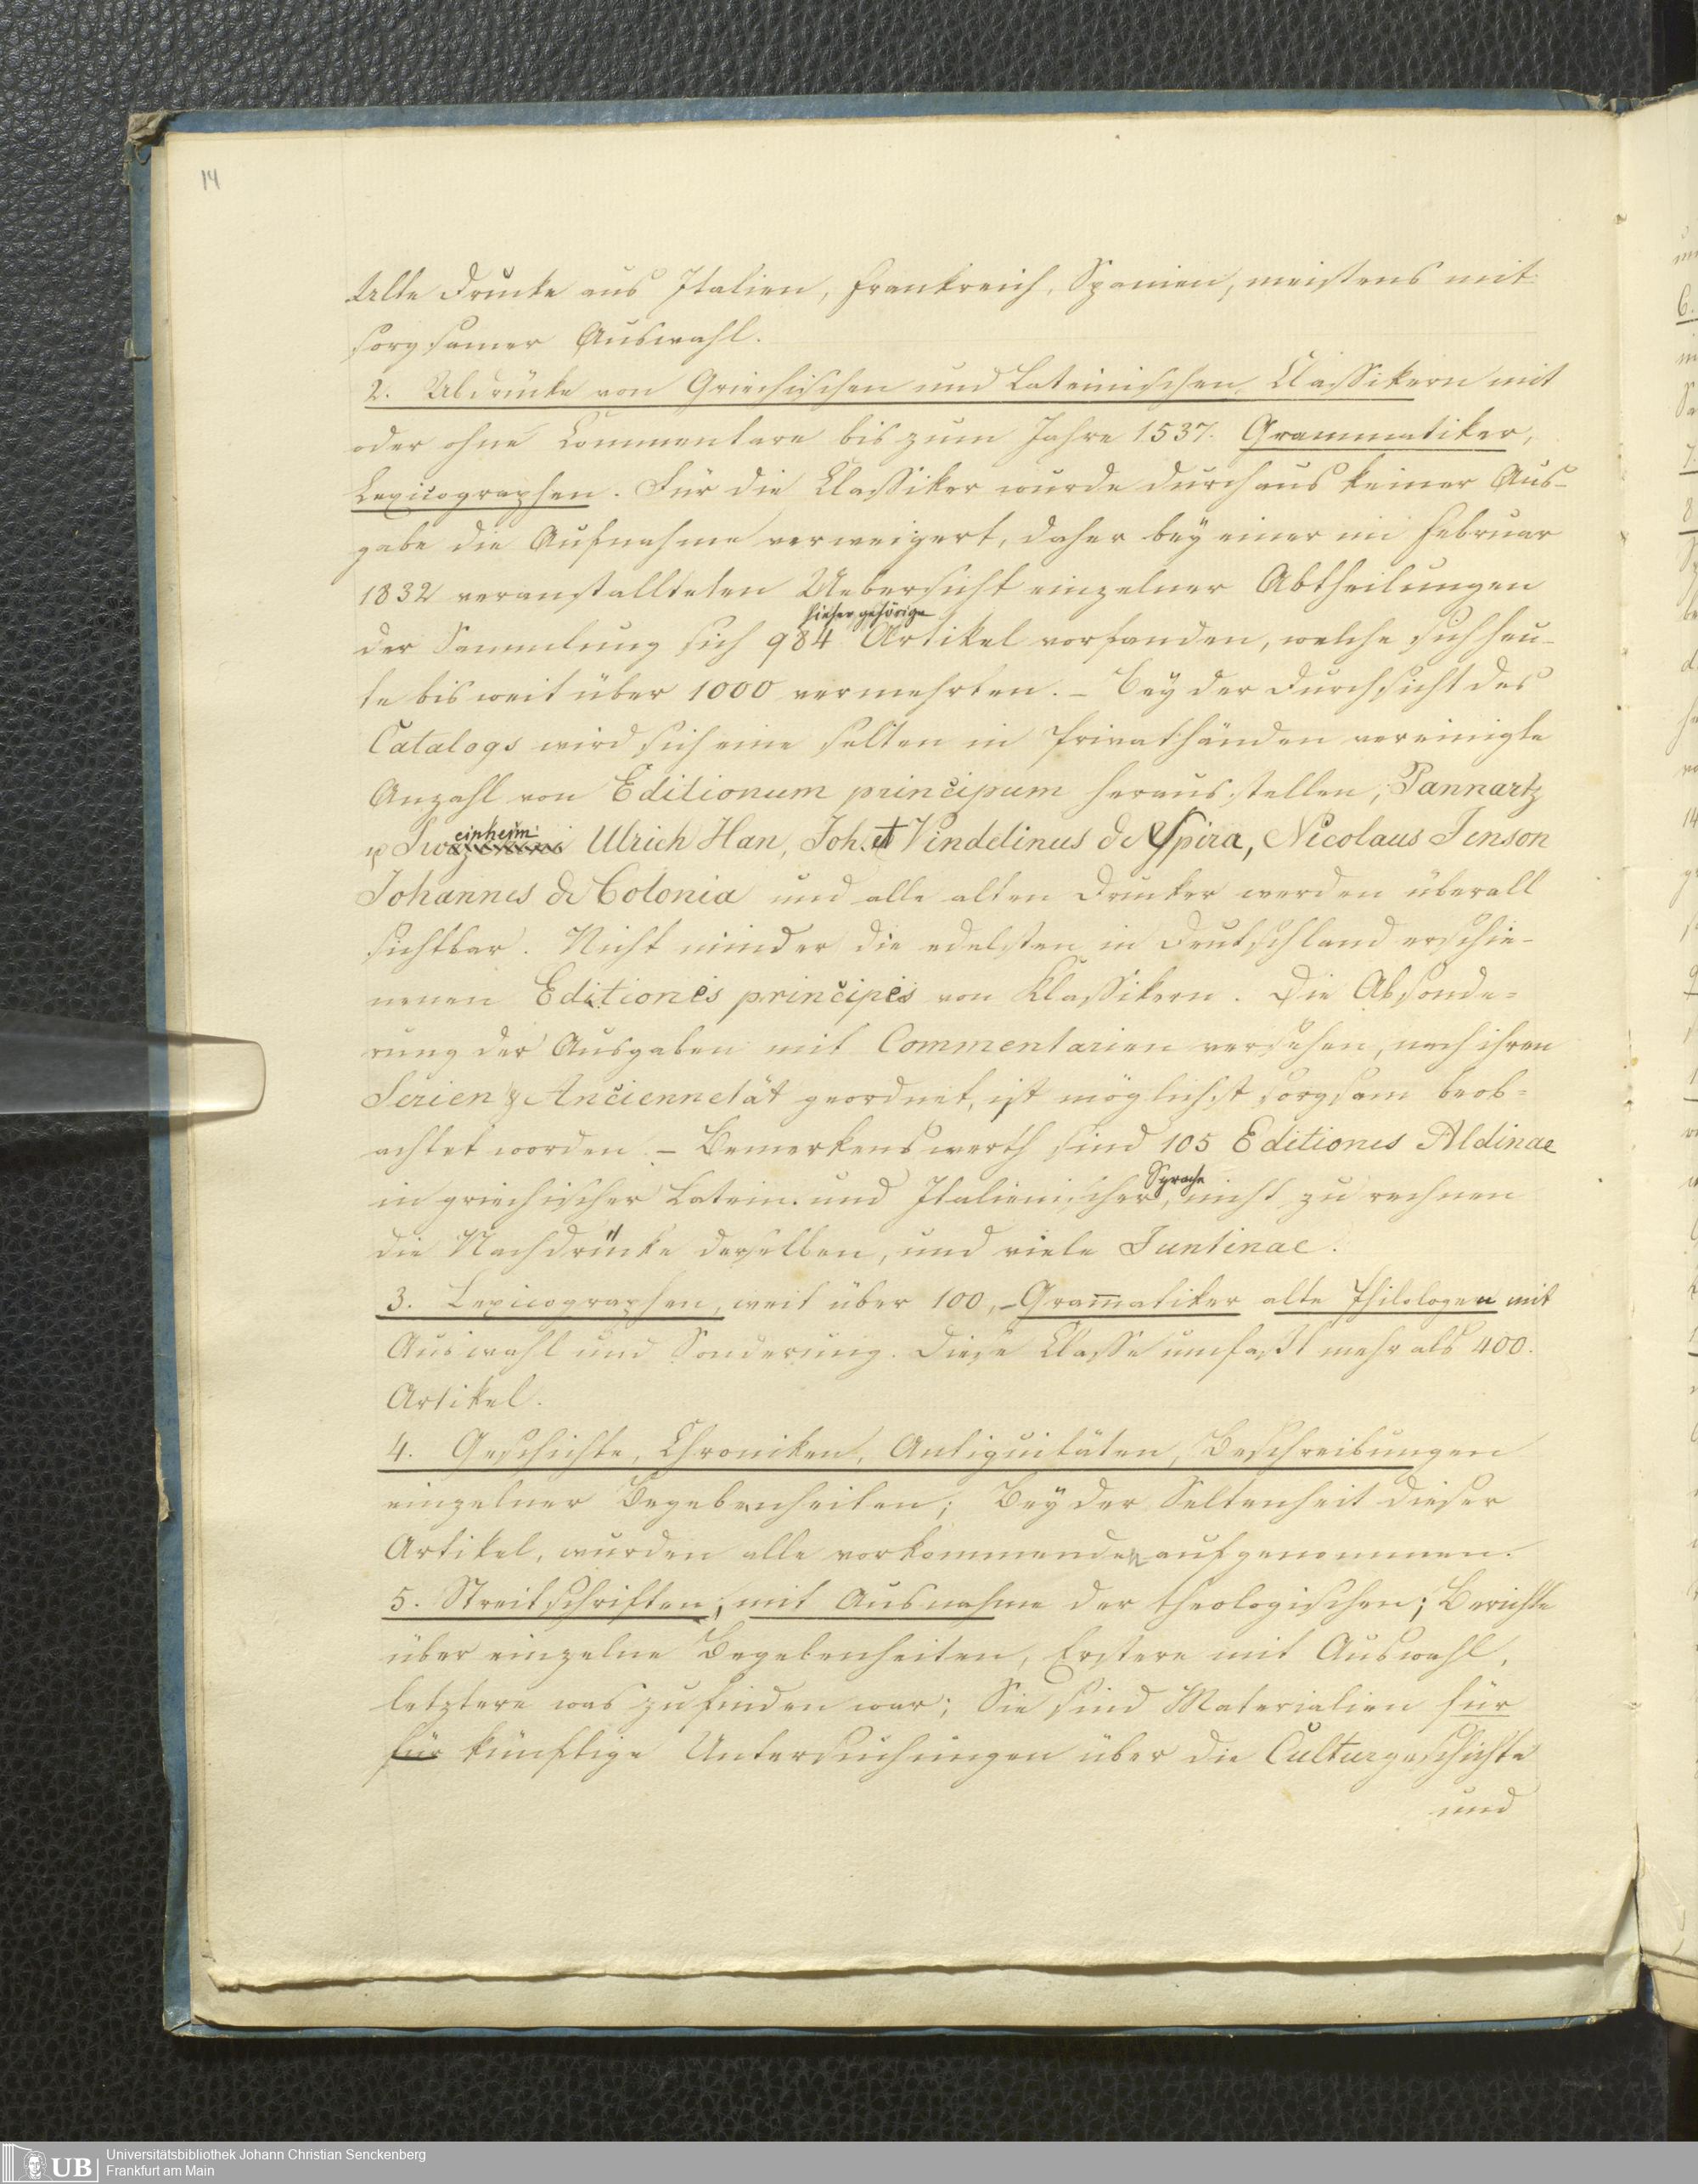 14
Alte Drucke aus Italien, Frankreich, Spanien, meistens mit
sorgsamer Auswahl.
2. Abdrücke von Griechischen und Lateinischen Classikern mit
oder ohne Commentare bis zum Jahre 1537. Grammatiker,
Lexicographen. Für die Classiker wurde durchaus keiner Aus-
gabe die Aufnahme verweigert, daher bey einer im Februar
1832 veranstallteten Uebersicht einzelner Abtheilungen
hieher gehörige
der Sammlung sich 984 Artikel vorfanden, welche sich heu-
te bis weit über 1000 vermehrten. – Bey der Durchsicht des
Catalogs wird sich eine selten in Privathänden vereinigte
Anzahl von Editionum principum herausstellen; Pannartz
einheim
u Swe Ulrich Han, Joh. et Vindelinus de Spira, Nicolaus Jenson
Johannes de Colonia und alle alten Drucker werden überall
sichtbar. Nicht minder die edelsten in Deutschland erschie-
nenen Editiones principes von Klassikern. Die Absonde-
rung der Ausgaben mit Commentarien versehen, nach ihren
Serien & Anciennetät geordnet, ist möglichst sorgsam beob-
achtet worden. – Bemerkenswerth sind 105 Editiones Aldinae
Sprache
in griechischer Latein. und Italienischer, nicht zu rechnen
die Nachdrücke derselben, und viele Juntinae.
3. Lexicographen, weit über 100, – Gramatiker alte Philologen mit
Auswahl und Sonderung. Diese Classe umfaßt mehr als 400.
Artikel.
4. Geschichte, Chroniken, Antiquitäten, Beschreibungen
einzelner Begebenheiten; Bey der Seltenheit dieser
Artikel, wurden alle vorkommenden aufgenommen.
5. Streitschriften, mit Ausnahme der theologischen; Berichte
über einzelne Begebenheiten, Erstere mit Auswahl,
letztere was zu finden war; Sie sind Materialien für
für künftige Untersuchungen über die Culturgeschichte
und
UB Universitätsbibliothek Johann Christian Senckenberg
Frankfurt am Main